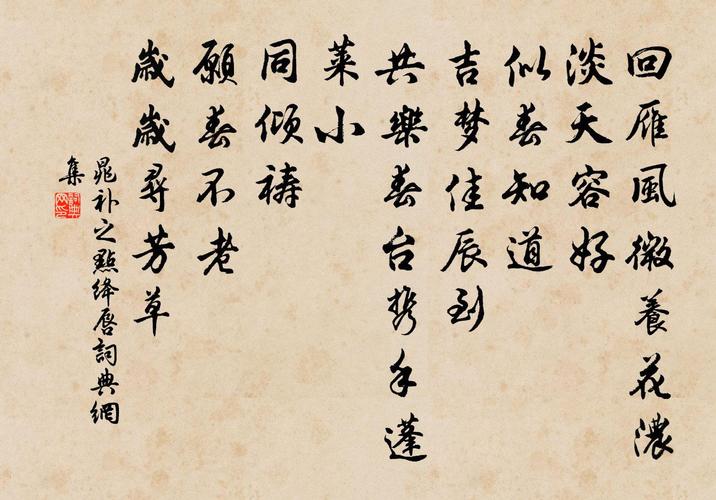 回雁風微養花濃
淡天容好
似春知道
吉梦佳辰到
共樂春台携手蓬
莱小
同傾禱
願春不老
歲歲尋芳草
晁补之點绛唇詞典網
集